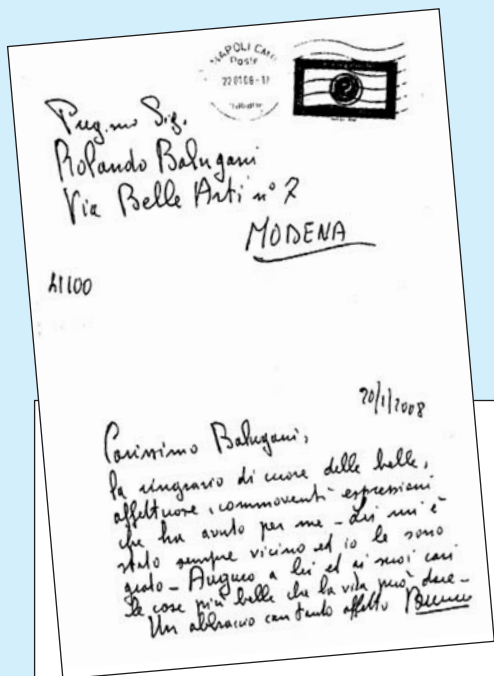 NAPOLI CMP
Poste
22 01 08 - 17
Preg.mo Sig.
Rolando Balugani
Via Belle Arti n° 7
MODENA
41100
20/1/2008
Carissimo Balugani,
la ringrazio di cuore delle belle,
affettuose, commoventi espressioni
che ha avuto per me - Lei mi è
stato sempre vicino ed io le sono
grato - Auguro a lei ed ai suoi cari
le cose più belle che la vita può dare -
Un abbraccio con tanto affetto